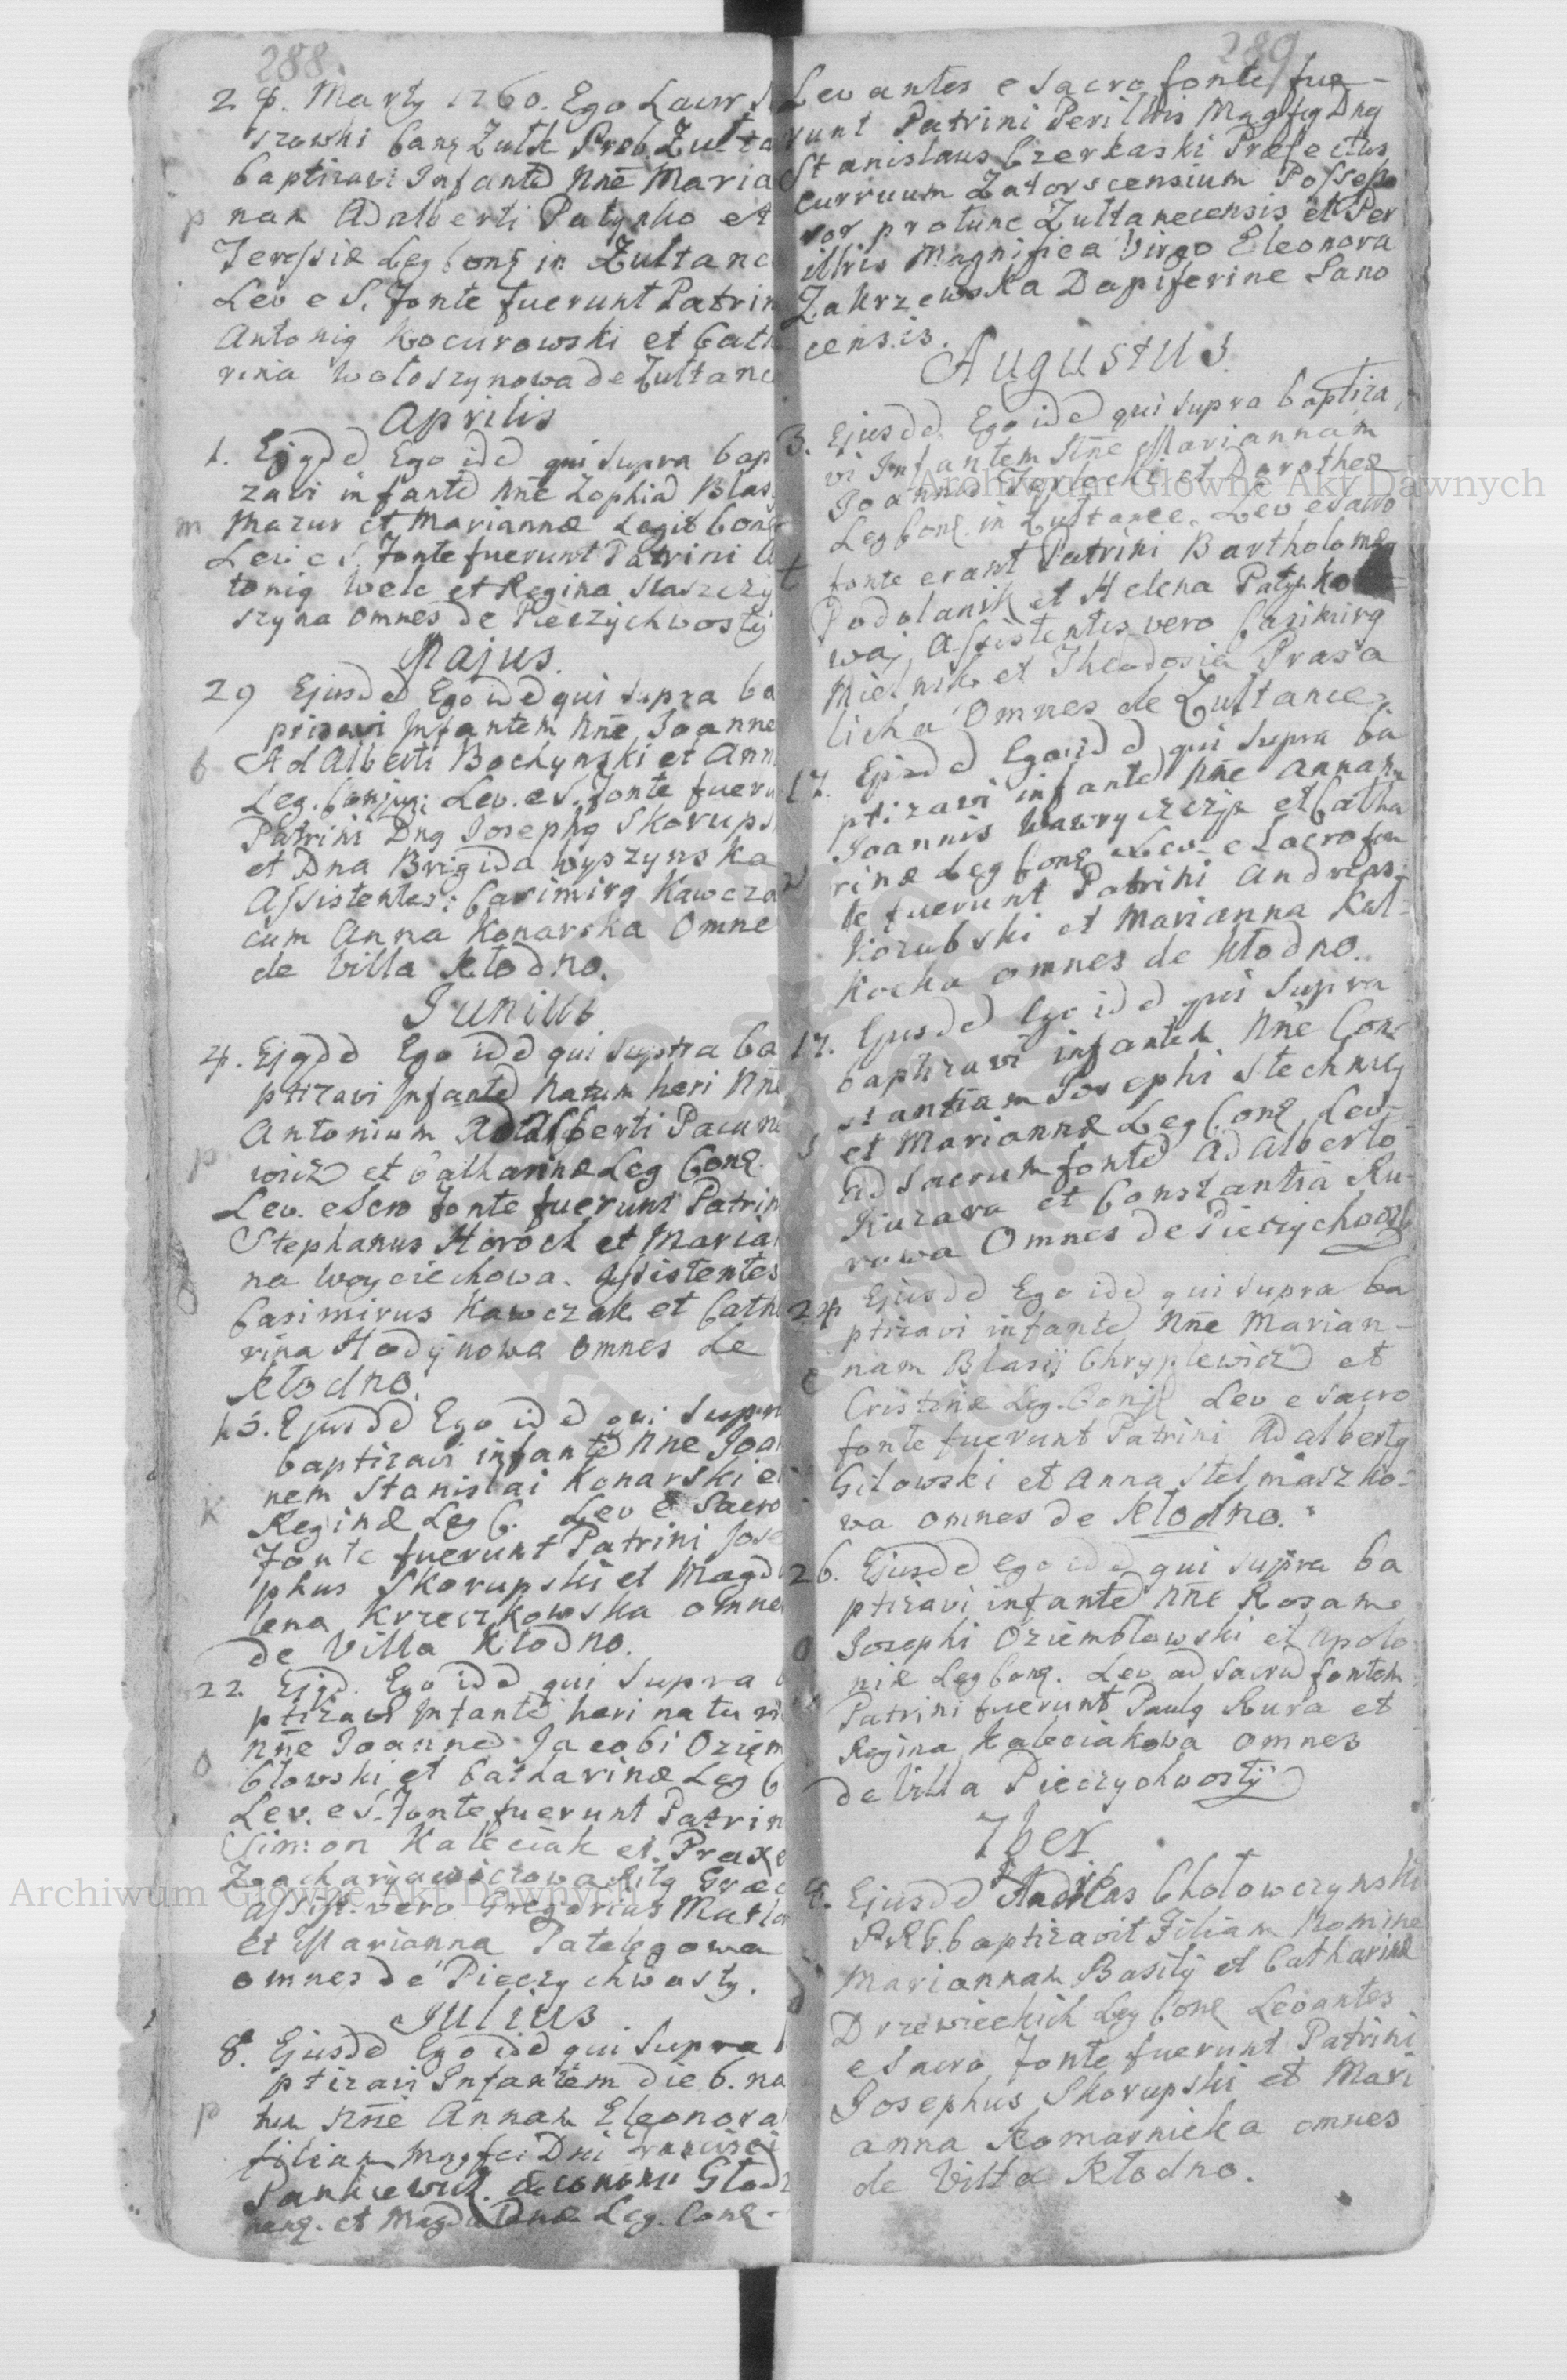 288.
24. Martÿ 1760. Ego Laur
szowski Canq Zułk Prob. Zułta
baptizavi Infanted Nne Maria
p nam Adalberti Patynko et
Teressiæ Leg Conq in Zultanc
Lev e S. fonte fuerunt Patrin
Antoniq Kocurowski et Cath
rina Wołoszynowa de Zułtanc
Aprilis
1. Ejqdd Ego idd qui supra bap
zavi infantd Nne Zophiad Blas
m Mazur et Mariannæ Legit Conq
Lev e S. fonte fuerunt Patrini
toniq Welc et Regina Staszczy
szyna omnes de Pieczychwostÿ
Majus.
29 Ejusdd Ego idd qui supra ba
ptizavi Infantem Nne Joanne
b Adalberti Bochynski et Ann
Leg. Conjuq: Lev. e S. fonte fueru
Patrini Dnq Josephq Skorups
et Dna Brigida Wyszynska
Assistentes: Casimirq Kawcza
cum Anna Konarska Omne
de Villa Kłodno.
Junius
4. Ejqdd Ego idd qui supra ba
ptizavi Infantd Natum heri Nne
Antonium Adalberti Pacune
p wicz et Catharinæ Leg Conq.
Lev. e Scro fonte fuerunt Patrin
Stephanus Horoch et Maria
na Woyciechowa. Assistentes
Casimirus Kawczak et Cath
rina Hodÿnowa omnes de
Kłodno.
15. Ejusdd Ego idd qui supr
baptizavi infantd Nne Joan
nem Stanislai Konarski e
K Reginæ Leg C. Lev e Sacro
fonte fuerunt Patrini Jose
phus Skorupski et Magd
lena Krzeczkowska omne
de Villa Kłodno.
22 Ejqd. Ego idd qui supra
ptizavi Infantd heri natu
Nne Joanned Jacobi Oziem
O błowski et Catharinæ Leg C
Lev. e S. fonte fuerunt Patrin
Simon Kaleciak et Praxe
Græc
assist. vero Gregorius
et Marianna
omnes de Pieczychwosty.
Julius
8. Ejusdd Ego idd qui supra
ptizavi Infantem die 6. na
p tu Nne Annam Eleonora
filiam Magfci Dni Francisci
Pankiewicz
et Magdalenæ Leg. Conq.
289
Levantes e sacro fonte fue-
runt Patrini Perillris Magfcq Dnq
Stanislaus Czerkaski Præfectus
curruum Zatorscensium Posses
sor protunc Zultanecensis et Per
illris Magnifica Virgo Eleonora
Zakrzewska Dapiferine Sano
censis.
Augustus.
3. Ejusdd Ego idd qui supra baptiza
vi Infantem Nne Mariannam
Joannis et Dorotheæ
Leg Conq. in Zultance. Lev e sacro
fonte erant Patrini Bartholomæq
Podolanik et Helena Patynko=
wa, Assistentes vero Casimirq
Mielnik et Theodosia Prasa
licha Omnes de Zultance.
17. Ejusdd Ego idd qui supra ba
ptizavi infantd Nne Annam
Joannis Wawryszczyk et Catha
rinæ Leg Conq Lev e Sacro fon
te fuerunt Patrini Andreas
Kozubski et Marianna Kul-
kocka omnes de Kłodno.
17. Ejusdd Ego idd qui supra
baptizavi infantem Nne Con
stantiam Josephi Stechnicy
s et Mariannæ Leg Conq Lev-
ad sacrum fontd Adalberto
Kuzara et Constantia Ru-
rowa Omnes de Pieczychwosty
24 Ejusdd Ego idd qui supra ba
ptizavi infantd Nne Marian-
nam Blasij Chryplewicz et
C Cristinæ Leg. Conjq Lev e sacro
fonte fuerunt Patrini Adalbertq
Gilowski et Anna Stelmaszko-
wa omnes de Kłodno.
26. Ejusdd Ego idd qui supra ba
ptizavi infantd Nne Rosam
O Josephi Oziembłowski et Apolo
niæ Leg Conq. Lev ad sacrd fontem
Patrini fuerunt Paulq Rura et
Regina Kaleciakowa omnes
de Villa Pieczychwostÿ
7ber
4. Ejusdd Andreas Chołowczynski
baptizavit Filiam Nomine
Mariannam Basilÿ et Catharinæ
Drzewieckich Leg Conq Levantes
e sacro fonte fuerunt Patrini
Josephus Skorupski et Mari
anna Komarnicka omnes
de Villa Kłodno.
Archiwum Główne Akt Dawnych
Archiwum Główne Akt Dawnych